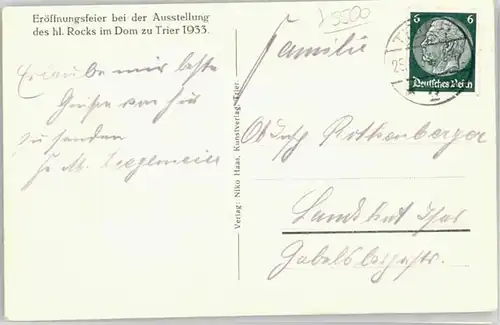 Eröffnungsfeier bei der Ausstellung
des hl. Rocks im Dom zu Trier 1933.
Erlaube mir beste
Grüße von hier
zu senden
Fr. M. Zieglmeier
Verlag: Niko Haas, Kunstverlag, Trier.
5500
6 6
Deutsches Reich
25.
Familie
Rothenberger
Landshut Isar
Gabelsbergerstr.